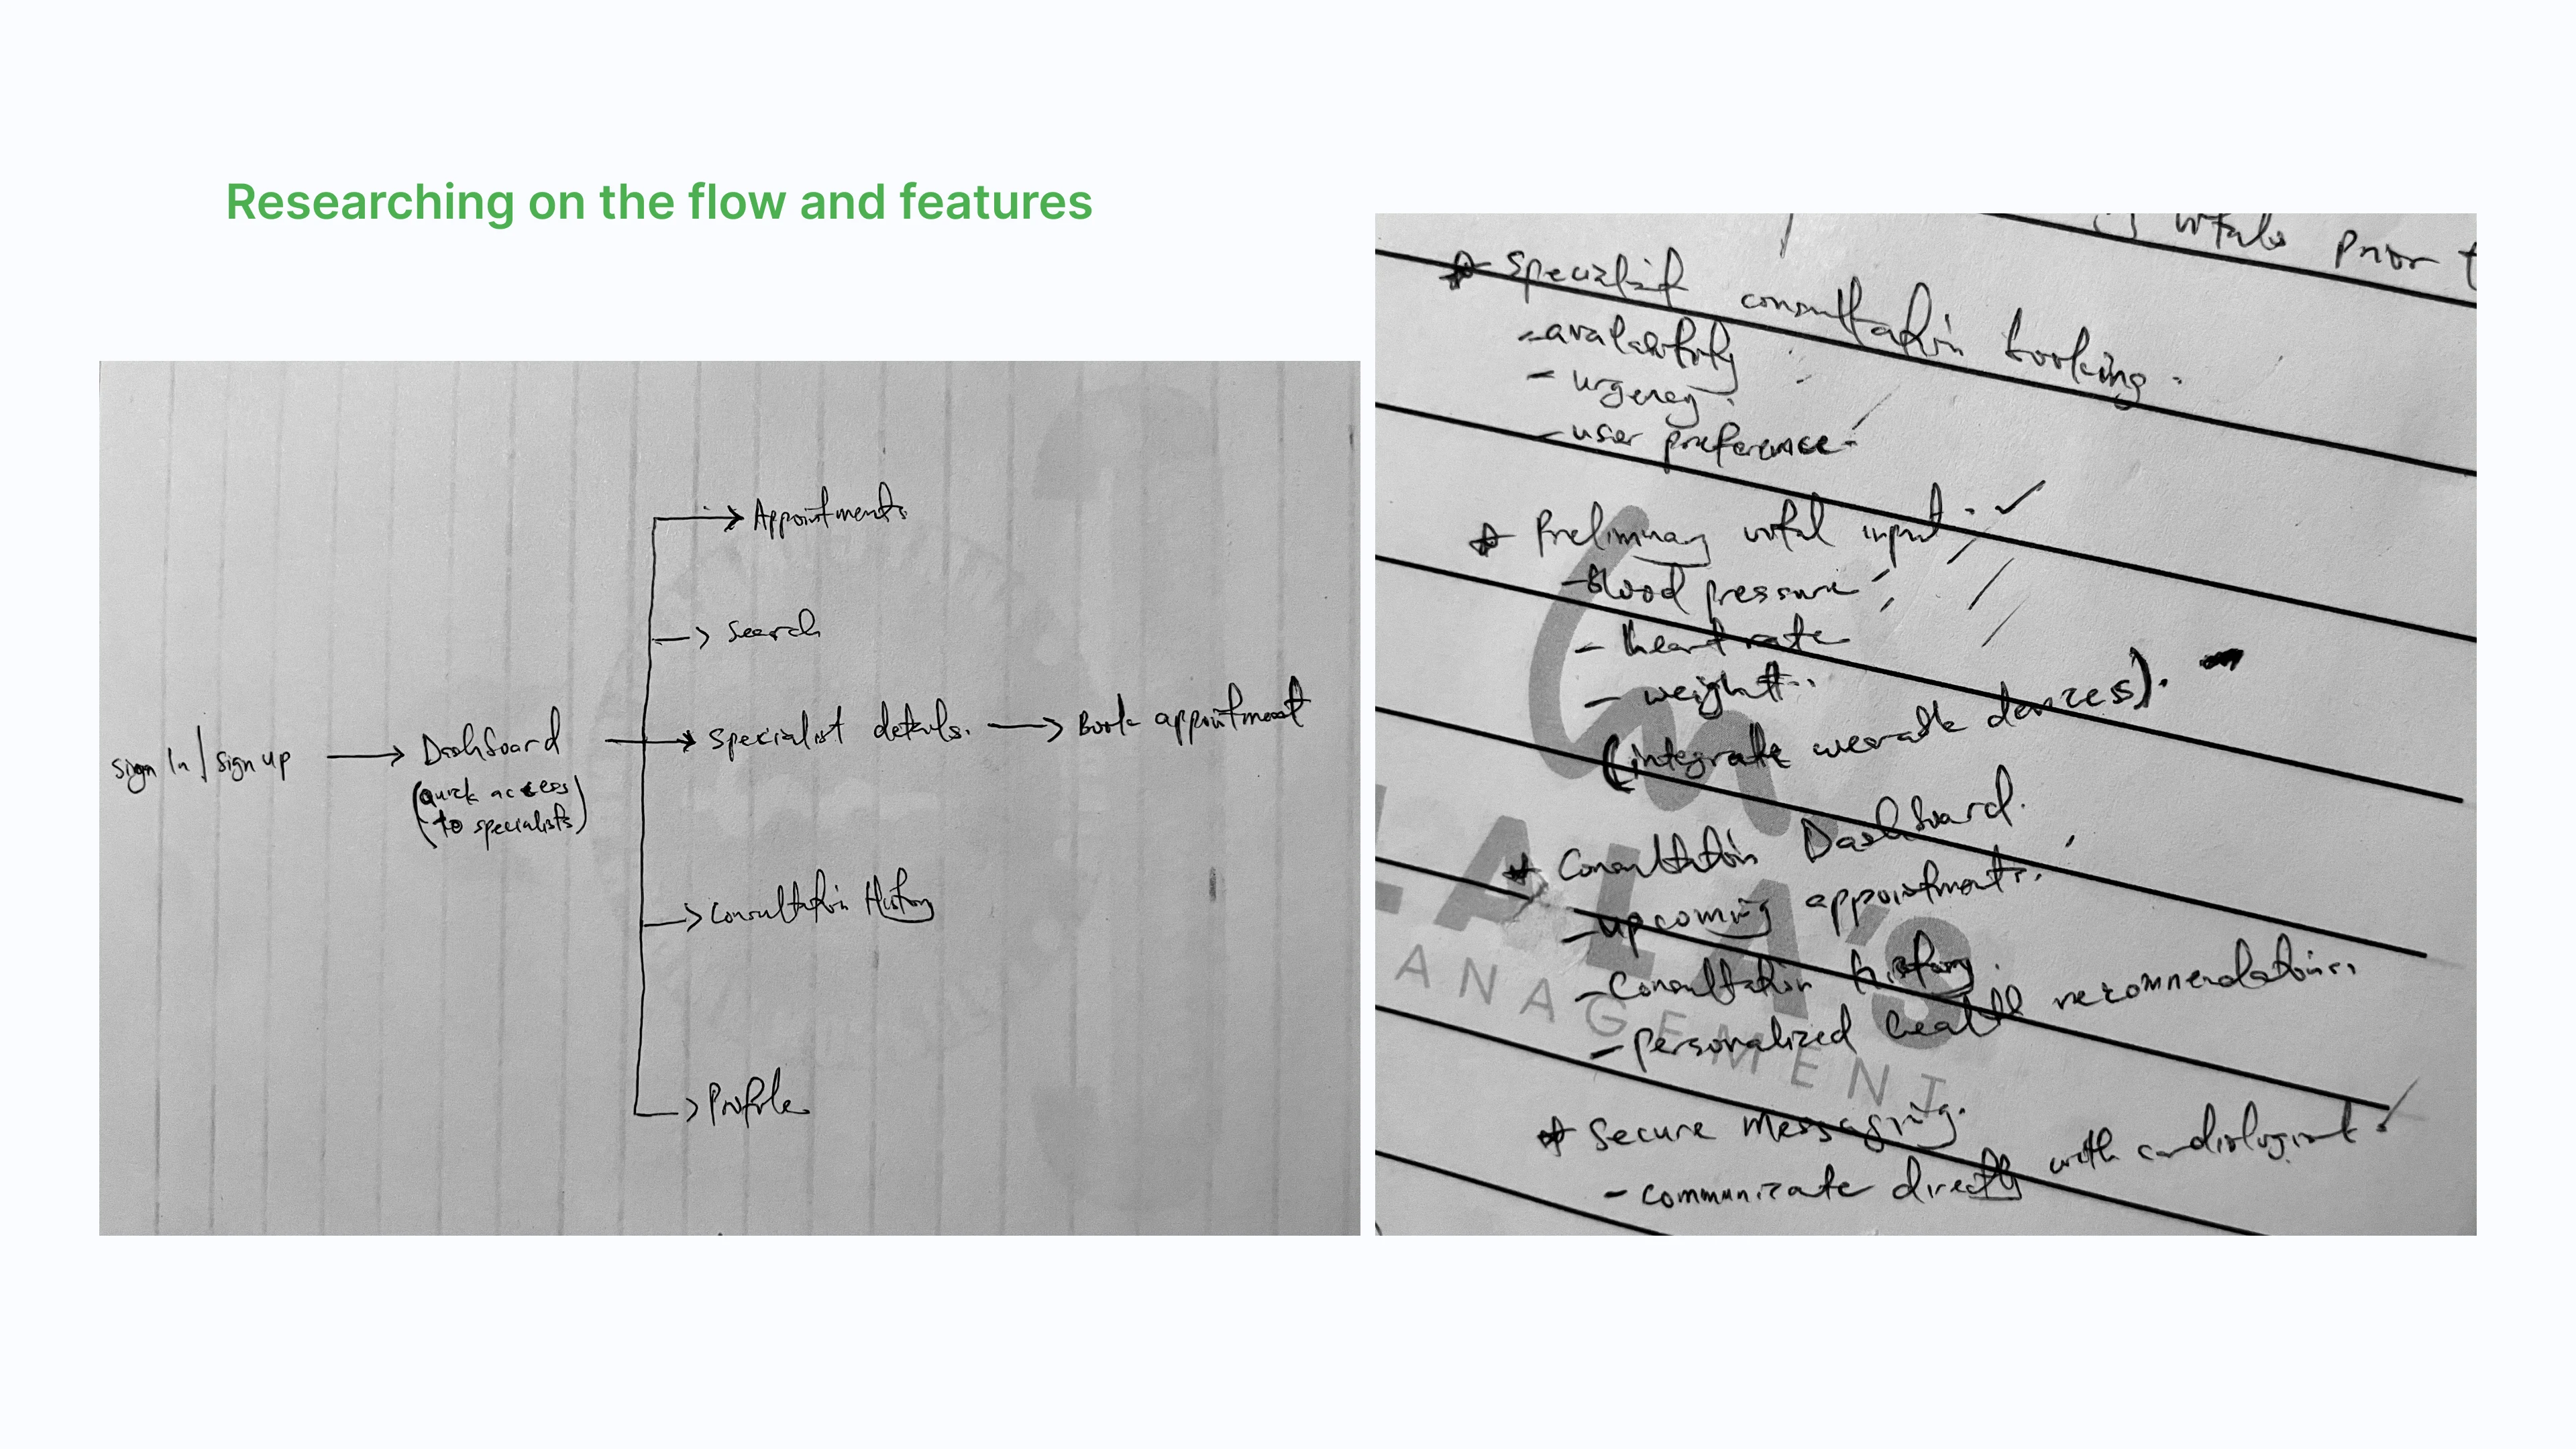 Researching on the flow and features
Sign In | Sign up
Dashboard
(quick access
to specialists)
Appointments
Search
Specialist details.
Book appointment
Consultation History
Profile
vitals prior
* Specialist consultation booking.
- availability
- urgency.
- user preference.
* Preliminary vital input. ✓
- Blood pressure
- heart rate
- weight.
(integrate wearable devices).
* Consultation Dashboard.
- upcoming appointments.
- Consultation history.
- personalized health recommendations.
* Secure Messaging.
- communicate directly with cardiologist.
LALA'S
ANAGEMENT